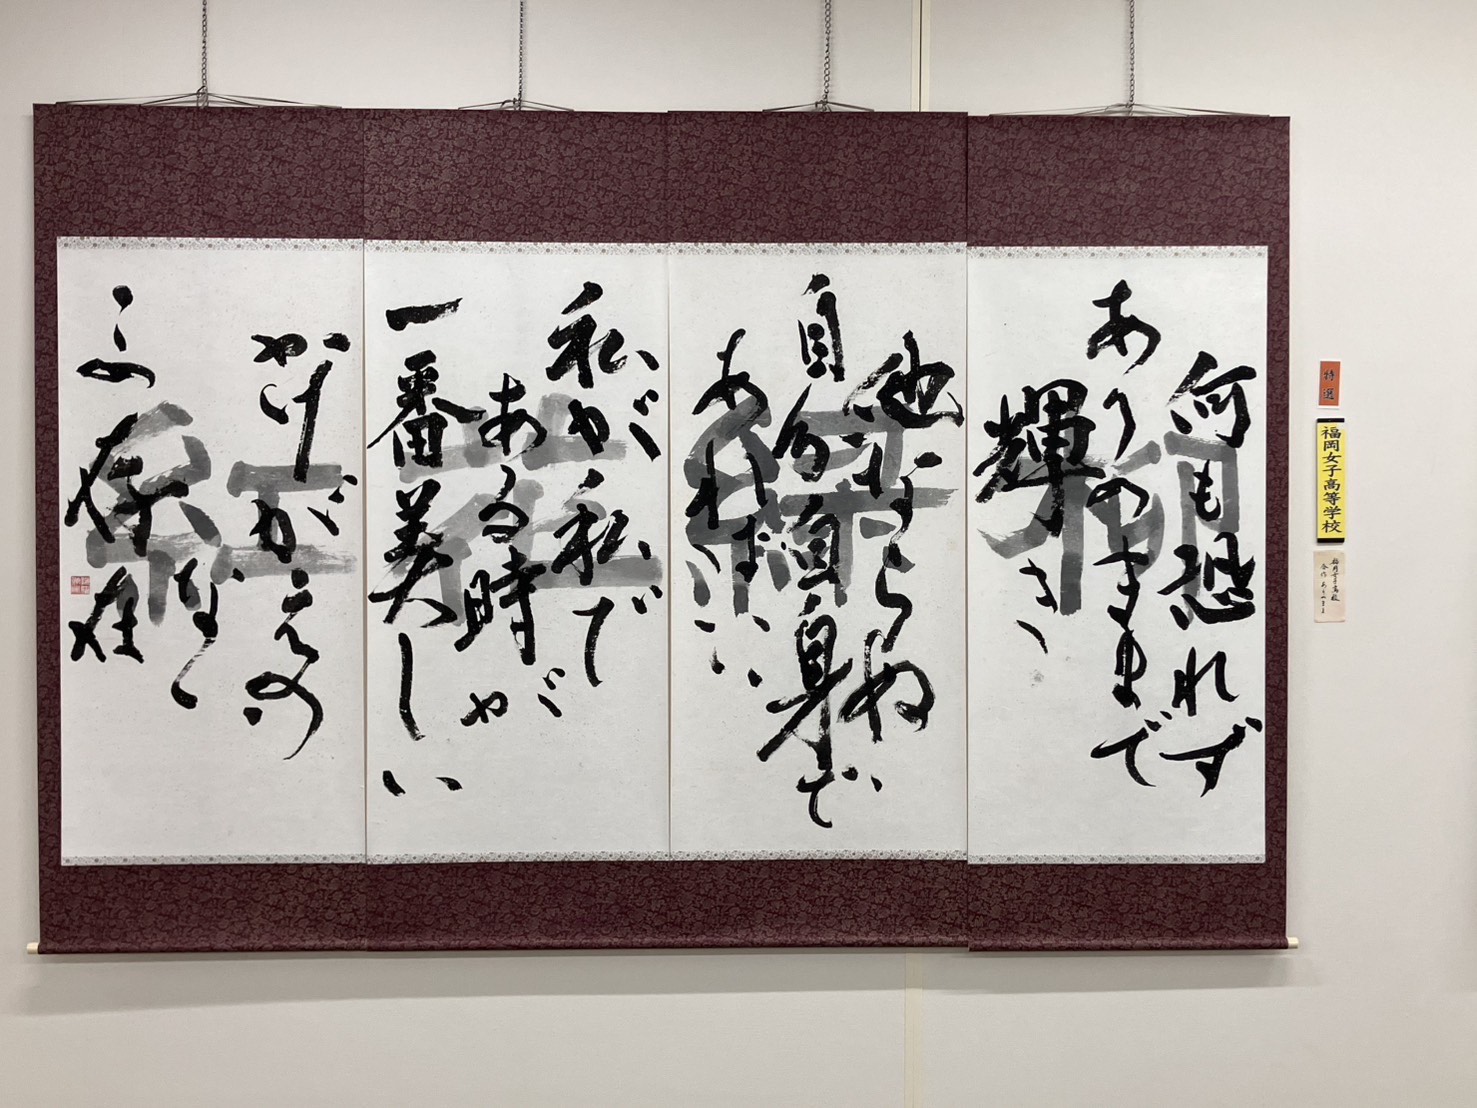 何も恐れず
ありのままで
輝き
他ならぬ
自分自身で
あればいい
私が私で
ある時が
一番美しい
かけがえの
ない
存在
特選
福岡女子高等学校
福岡女子高校
合作 ありのまま